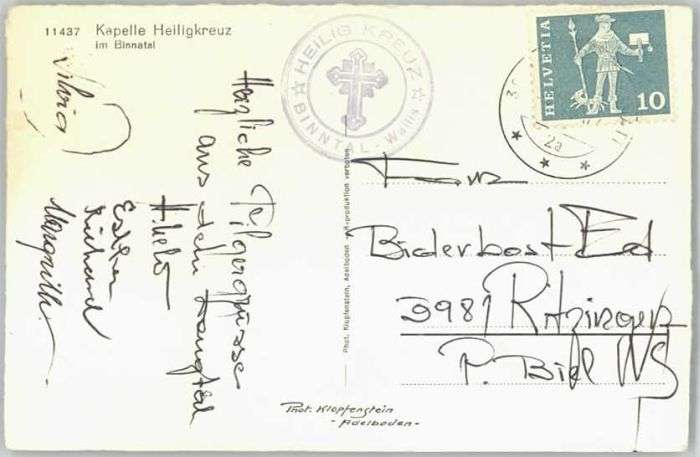 11437 Kapelle Heiligkreuz
im Binnatal
HEILIG KREUZ
BINNTAL - Wallis
HELVETIA
10
Herzliche Pilgergrüsse
aus dem
Esther
Richard
Silvia
Phot. Klopfenstein, Adelboden Alle Reproduktion verboten
Biderbost-Ed
3981 Ritzingen
P. Biel WS
Phot. Klopfenstein
- Adelboden -